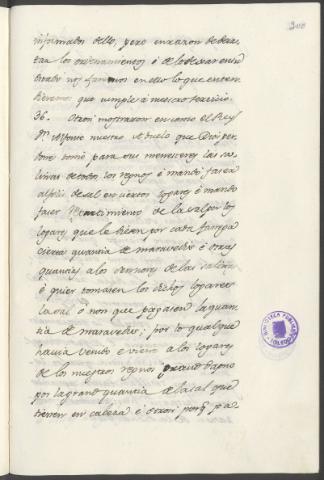 200
informados dello, pero en razon de desa-
tar los ordenamientos é de lo desir en su
estado nos faremos en ello lo que enten-
dieremos que cumple á nuestro servicio.
36. Otrosi mostraron en como el Rey
Dn. Alfonso nuestro Abuelo que Dios per-
done tomó para sus menesteres las sa-
linas de todos los regnos é mandó faser
alfolis de sal en ciertos logares é mandó
faser repartimiento de la sal por los
logares que le diesen por cada fanega
cierta quantia de maravedis é otras
quantias a los señores de las salinas
é quier tomasen los dichos logares
la sal ó non que pagasen la quan-
tia de maravedis; por lo qual que
havia venido e viene a los logares
de los nuestros regnos grand dapno
por la grand quantia de la sal que
tienen en cabeza é otrosi porq. pa-
BIBLIOTECA PUBLICA
TOLEDO